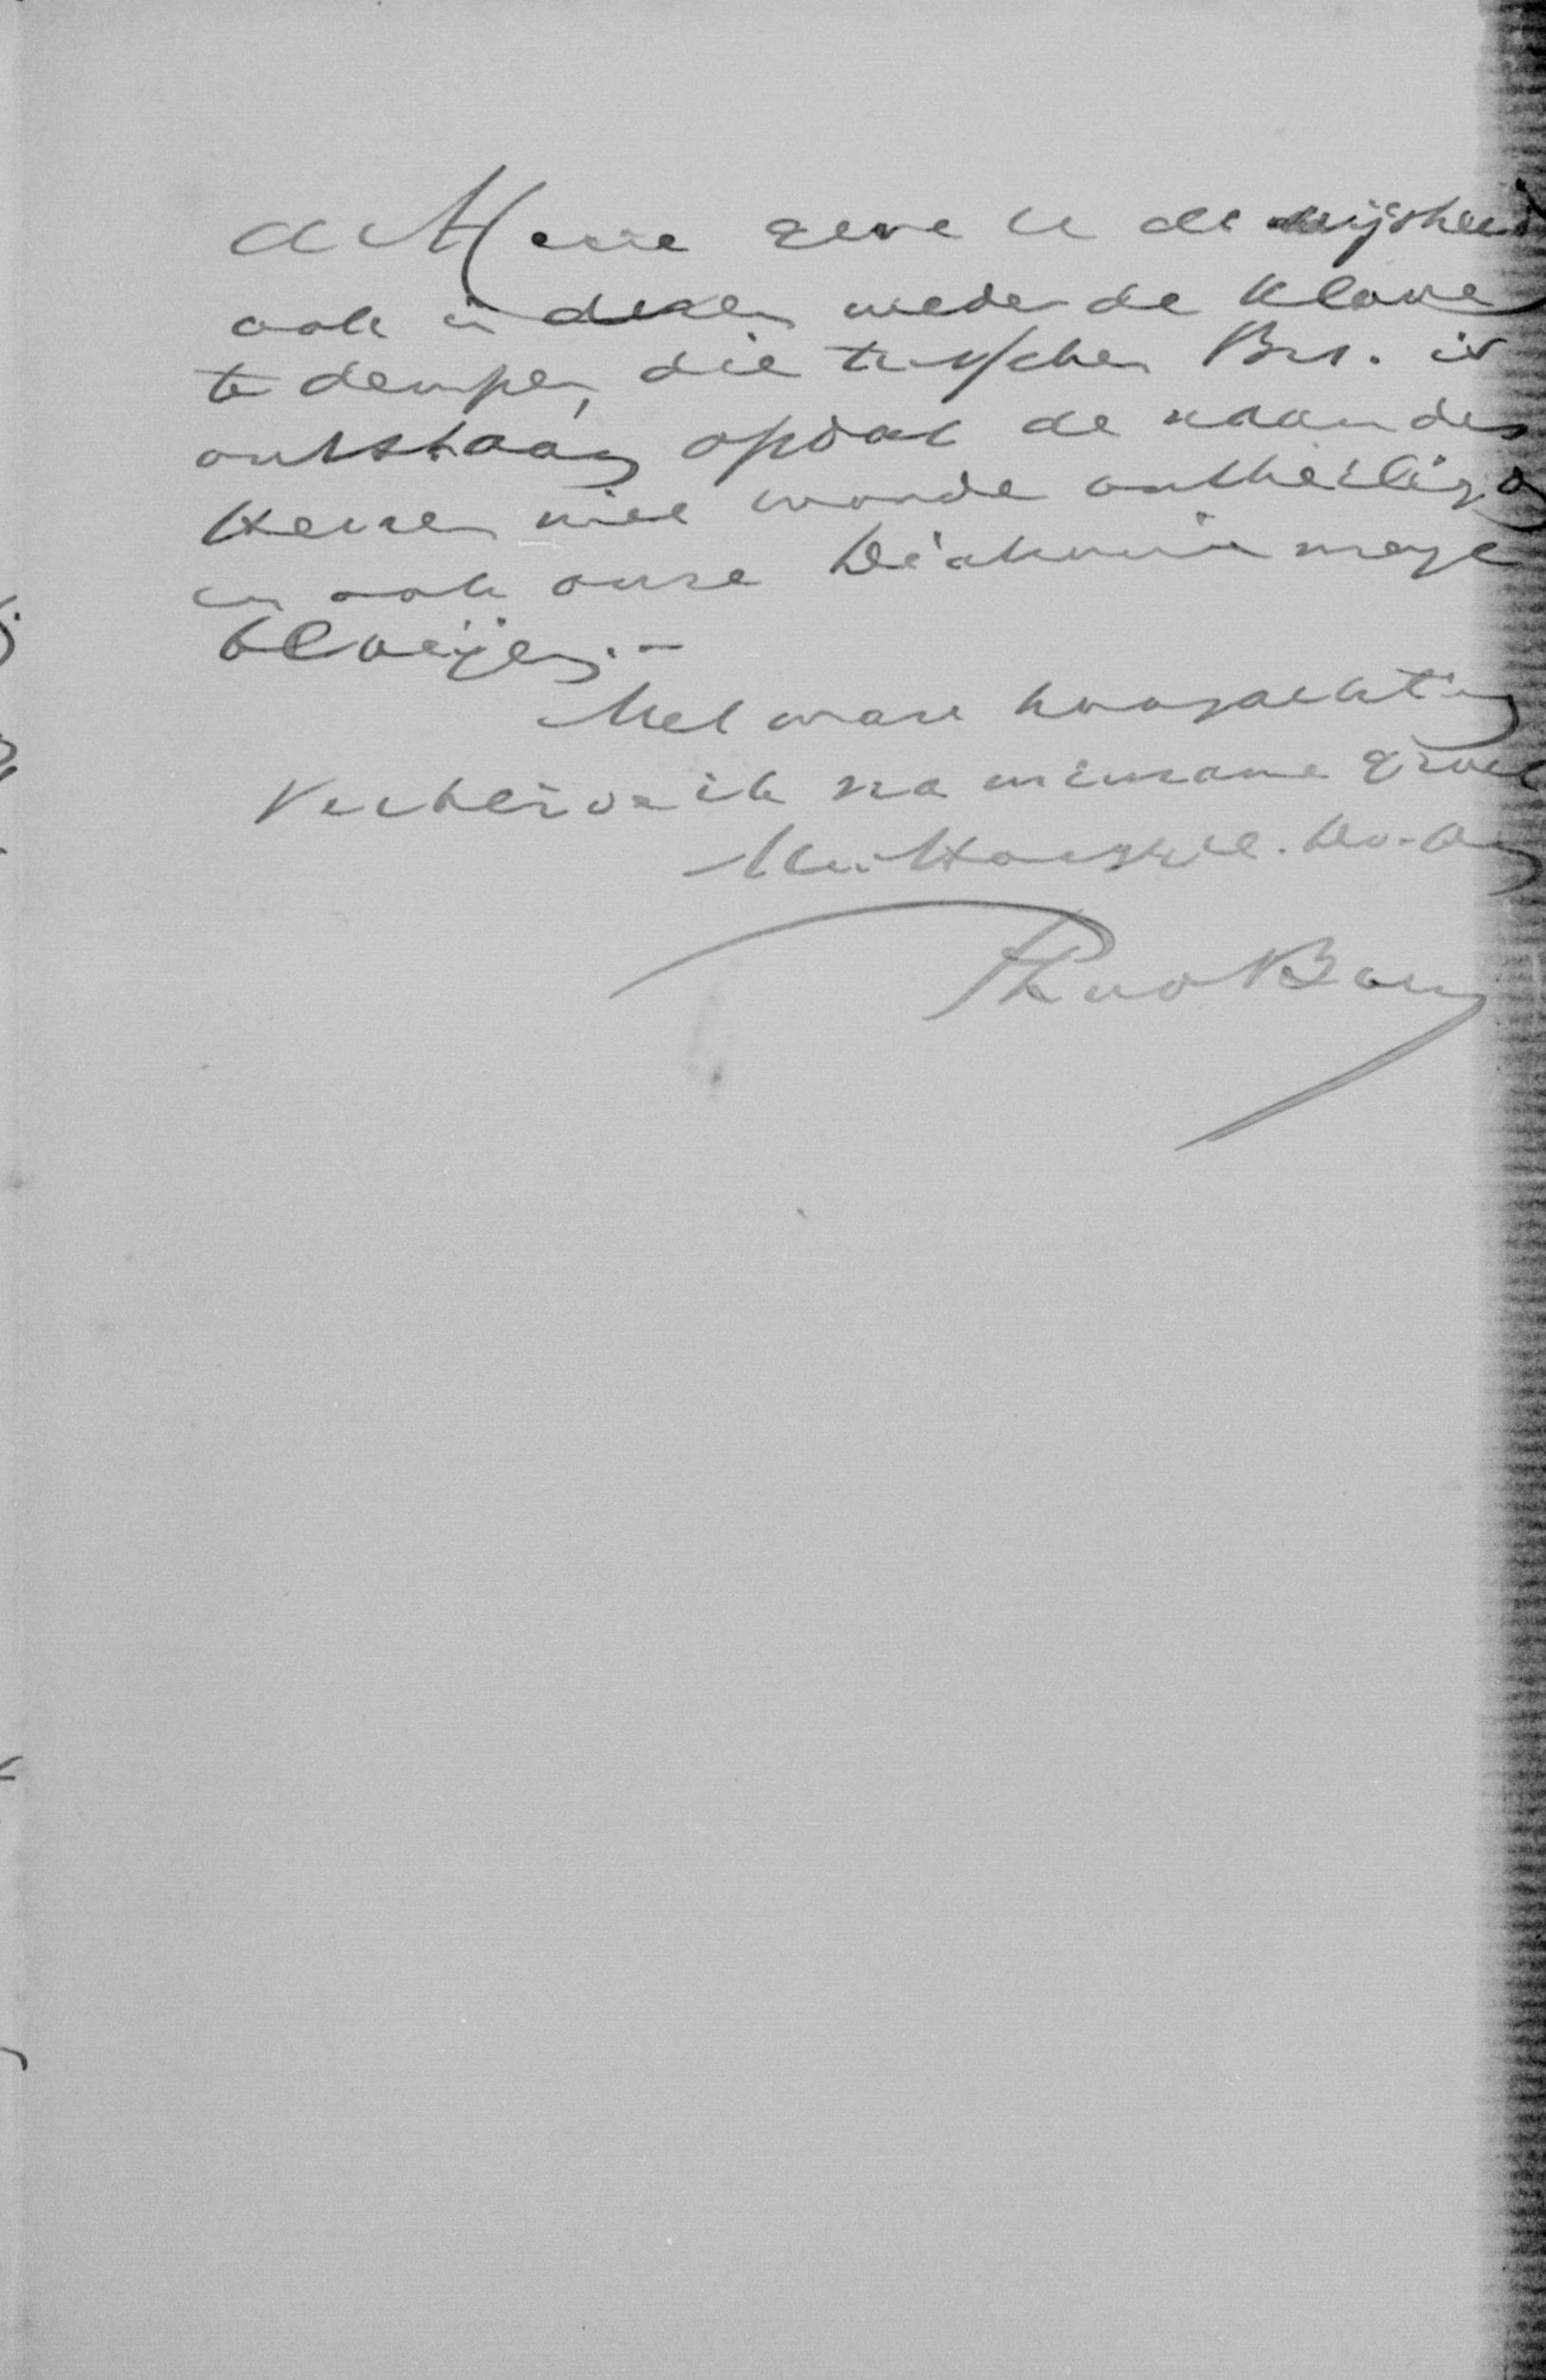 de Heere geve U de wijsheid
ook in dezen weder de klove
te dempen, die tusschen Brs. is
ontstaan opdat de naam des
Heeren niet worde ontheiligd
en ook onze Diakonie moge
bloeijen. -
Met ware hoogachting
Verblijve ik na minzame groet